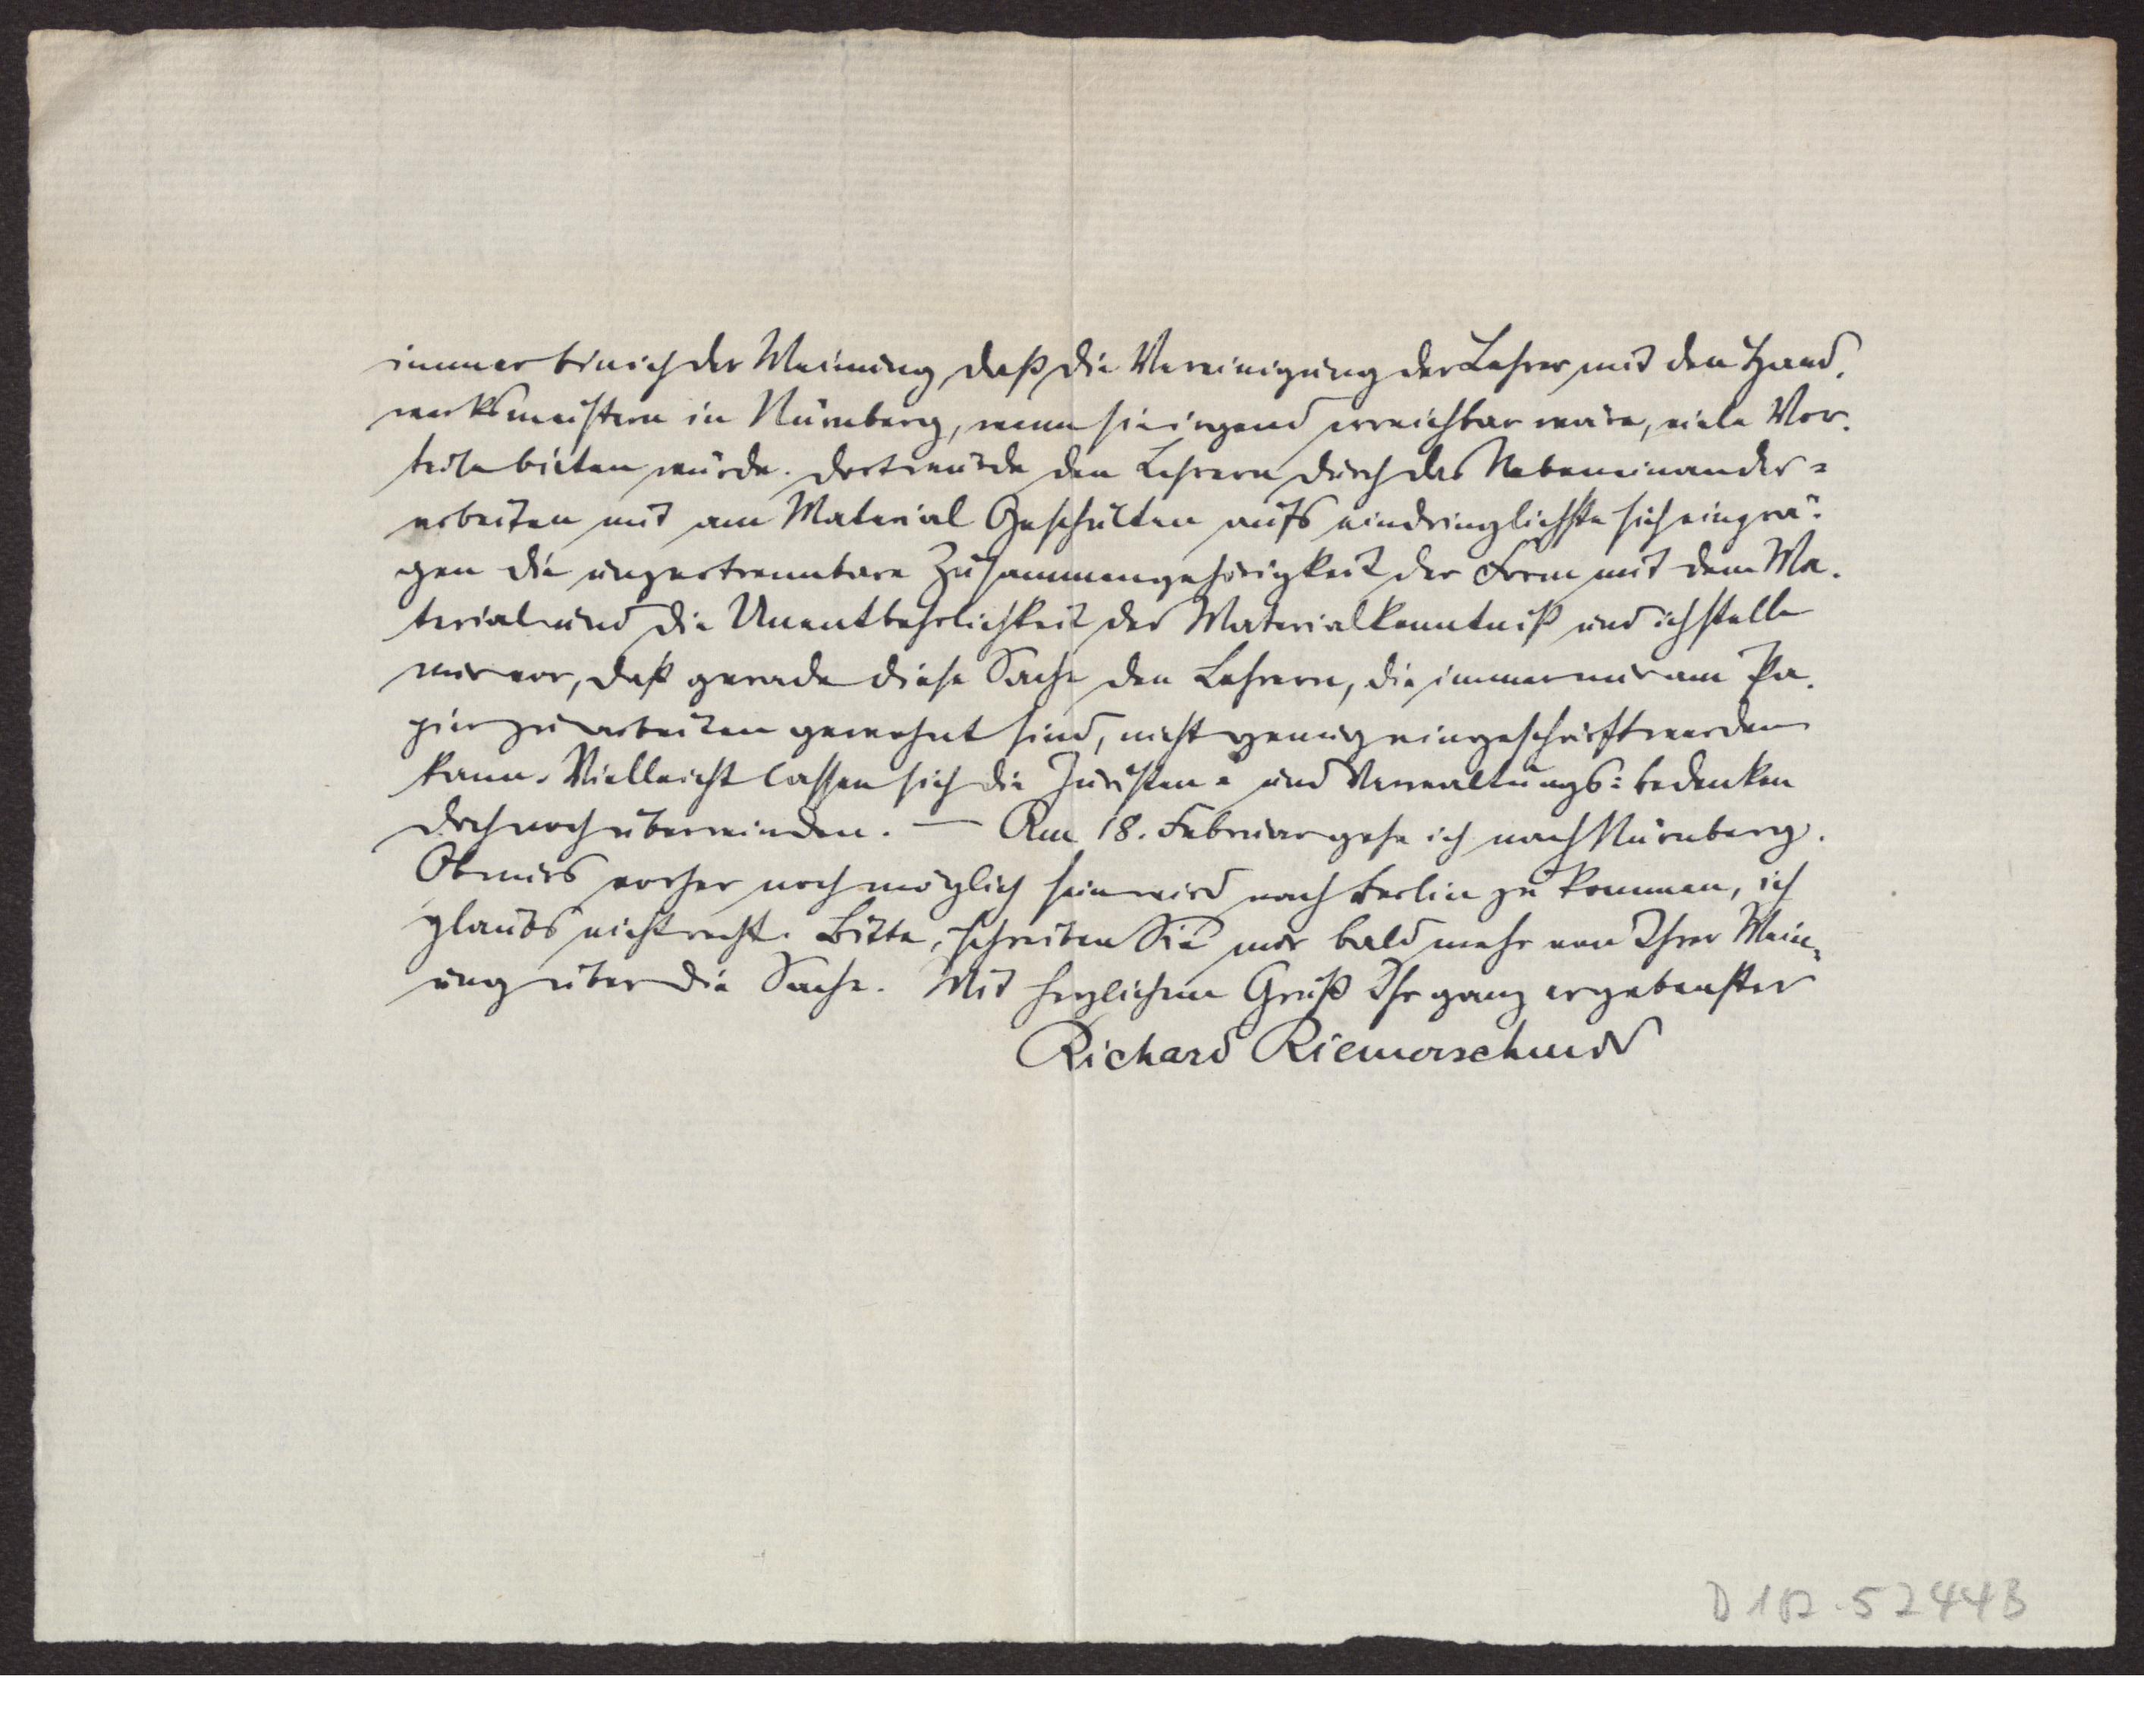 immer bin ich der Meinung, daß die Vereinigung der Lehrer mit den Hand-
werksmeistern in Nürnberg, wenn sie irgend erreichbar wäre, viele Vor-
teile bieten würde. Dort würde den Lehrern durch das Nebeneinander-
arbeiten mit am Material Geschulten aufs eindringlichste sich einprä-
gen die unzertrennbare Zusammengehörigkeit der Form mit dem Ma-
terial und die Unentbehrlichkeit der Materialkenntniß und ich stelle
mir vor, daß gerade diese Sache den Lehrern, die immer nur am Pa-
pier zu arbeiten gewohnt sind, nicht genug eingeschärft werden
kann. Vielleicht lassen sich die Juristen- und Verwaltungs-bedenken
doch noch überwinden. — Am 18. Februar gehe ich nach Nürnberg.
Ob mirs vorher noch möglich sein wird nach Berlin zu kommen, ich
glaubs nicht recht. Bitte, schreiben Sie mir bald mehr von Ihrer Mein-
ung über die Sache. Mit herzlichem Gruß Ihr ganz ergebenster
Richard Riemerschmid
D 182.5244B